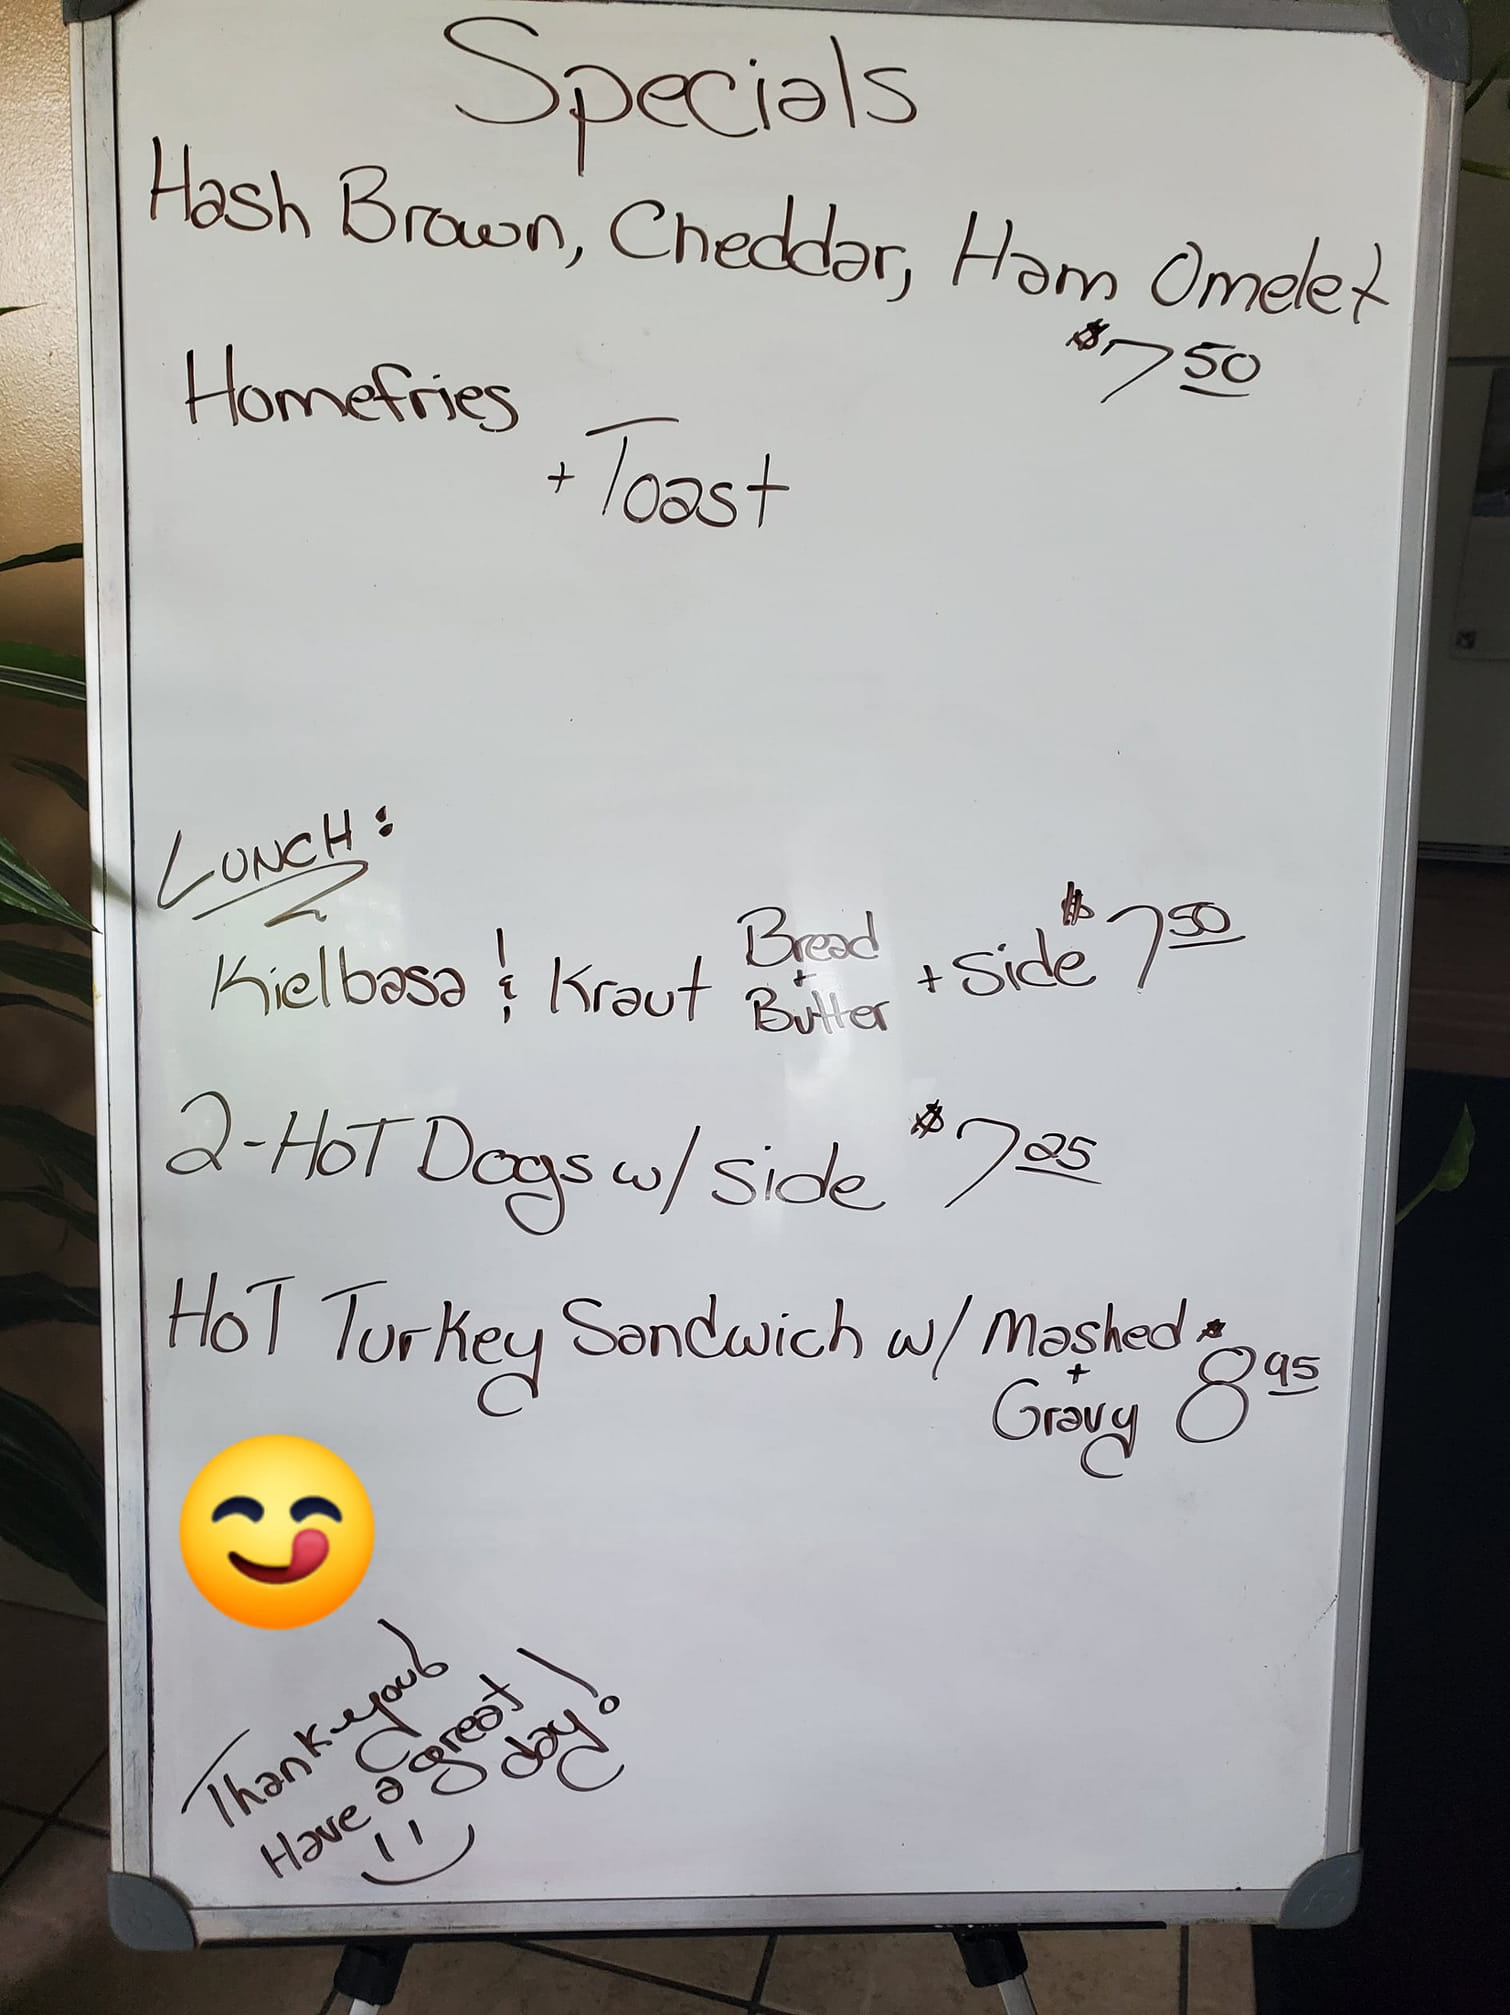 Specials
Hash Brown, Cheddar, Ham Omelet
$7 50
Homefries
+ Toast
LUNCH:
Kielbasa & Kraut Bread + Butter + Side $7 50
2-HOT Dogs w/ side $7 25
HOT Turkey Sandwich w/ Mashed + Gravy $8 95
Thank you!
Have a great day!